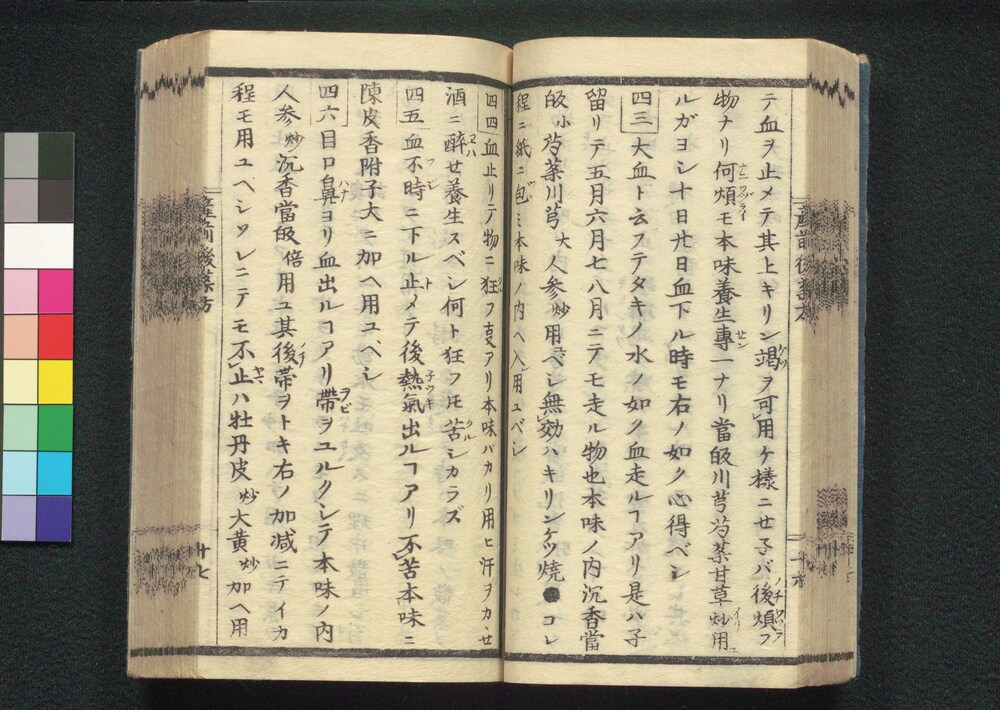 テ血ヲ止メテ其上キリン竭ヲ可用ケ様ニせ子バ後煩フ
物ナリ何煩モ本味養生專一ナリ當皈川芎芍薬甘草炒用
ルガヨシ十日廿日血下ル時モ右ノ如ク心得ベシ
四三大血ト云フテタキノ水ノ如ク血走ルヿアリ是ハ子
留リテ五月六月七八月ニテモ走ル物也本味ノ内沉香當
皈小芍薬川芎大人参炒用ベシ無効ハキリンケツ焼●コレ
程ニ紙ニ包ミ本味ノ内ヘ入用ユベシ
四四血止リテ物ニ狂フ叓アリ本味バカリ用ヒ汗ヲカヽせ
酒ニ醉せ養生スベシ何ト狂フ𪜈苦シカラズ
四五血不時ニ下ル止メテ後熱氣出ルヿアリ不苦本味ニ
陳皮香附子大ニ加ヘ用ユヘシ
四六目口鼻ヨリ血出ルヿアリ帶ヲユルクシテ本味ノ内
人参炒沉香當皈倍用ユ其後帶ヲトキ右ノ加减ニテイカ
程モ用ユヘシソレニテモ不止ハ牡丹皮炒大黄炒加ヘ用
産前後藥方
十七